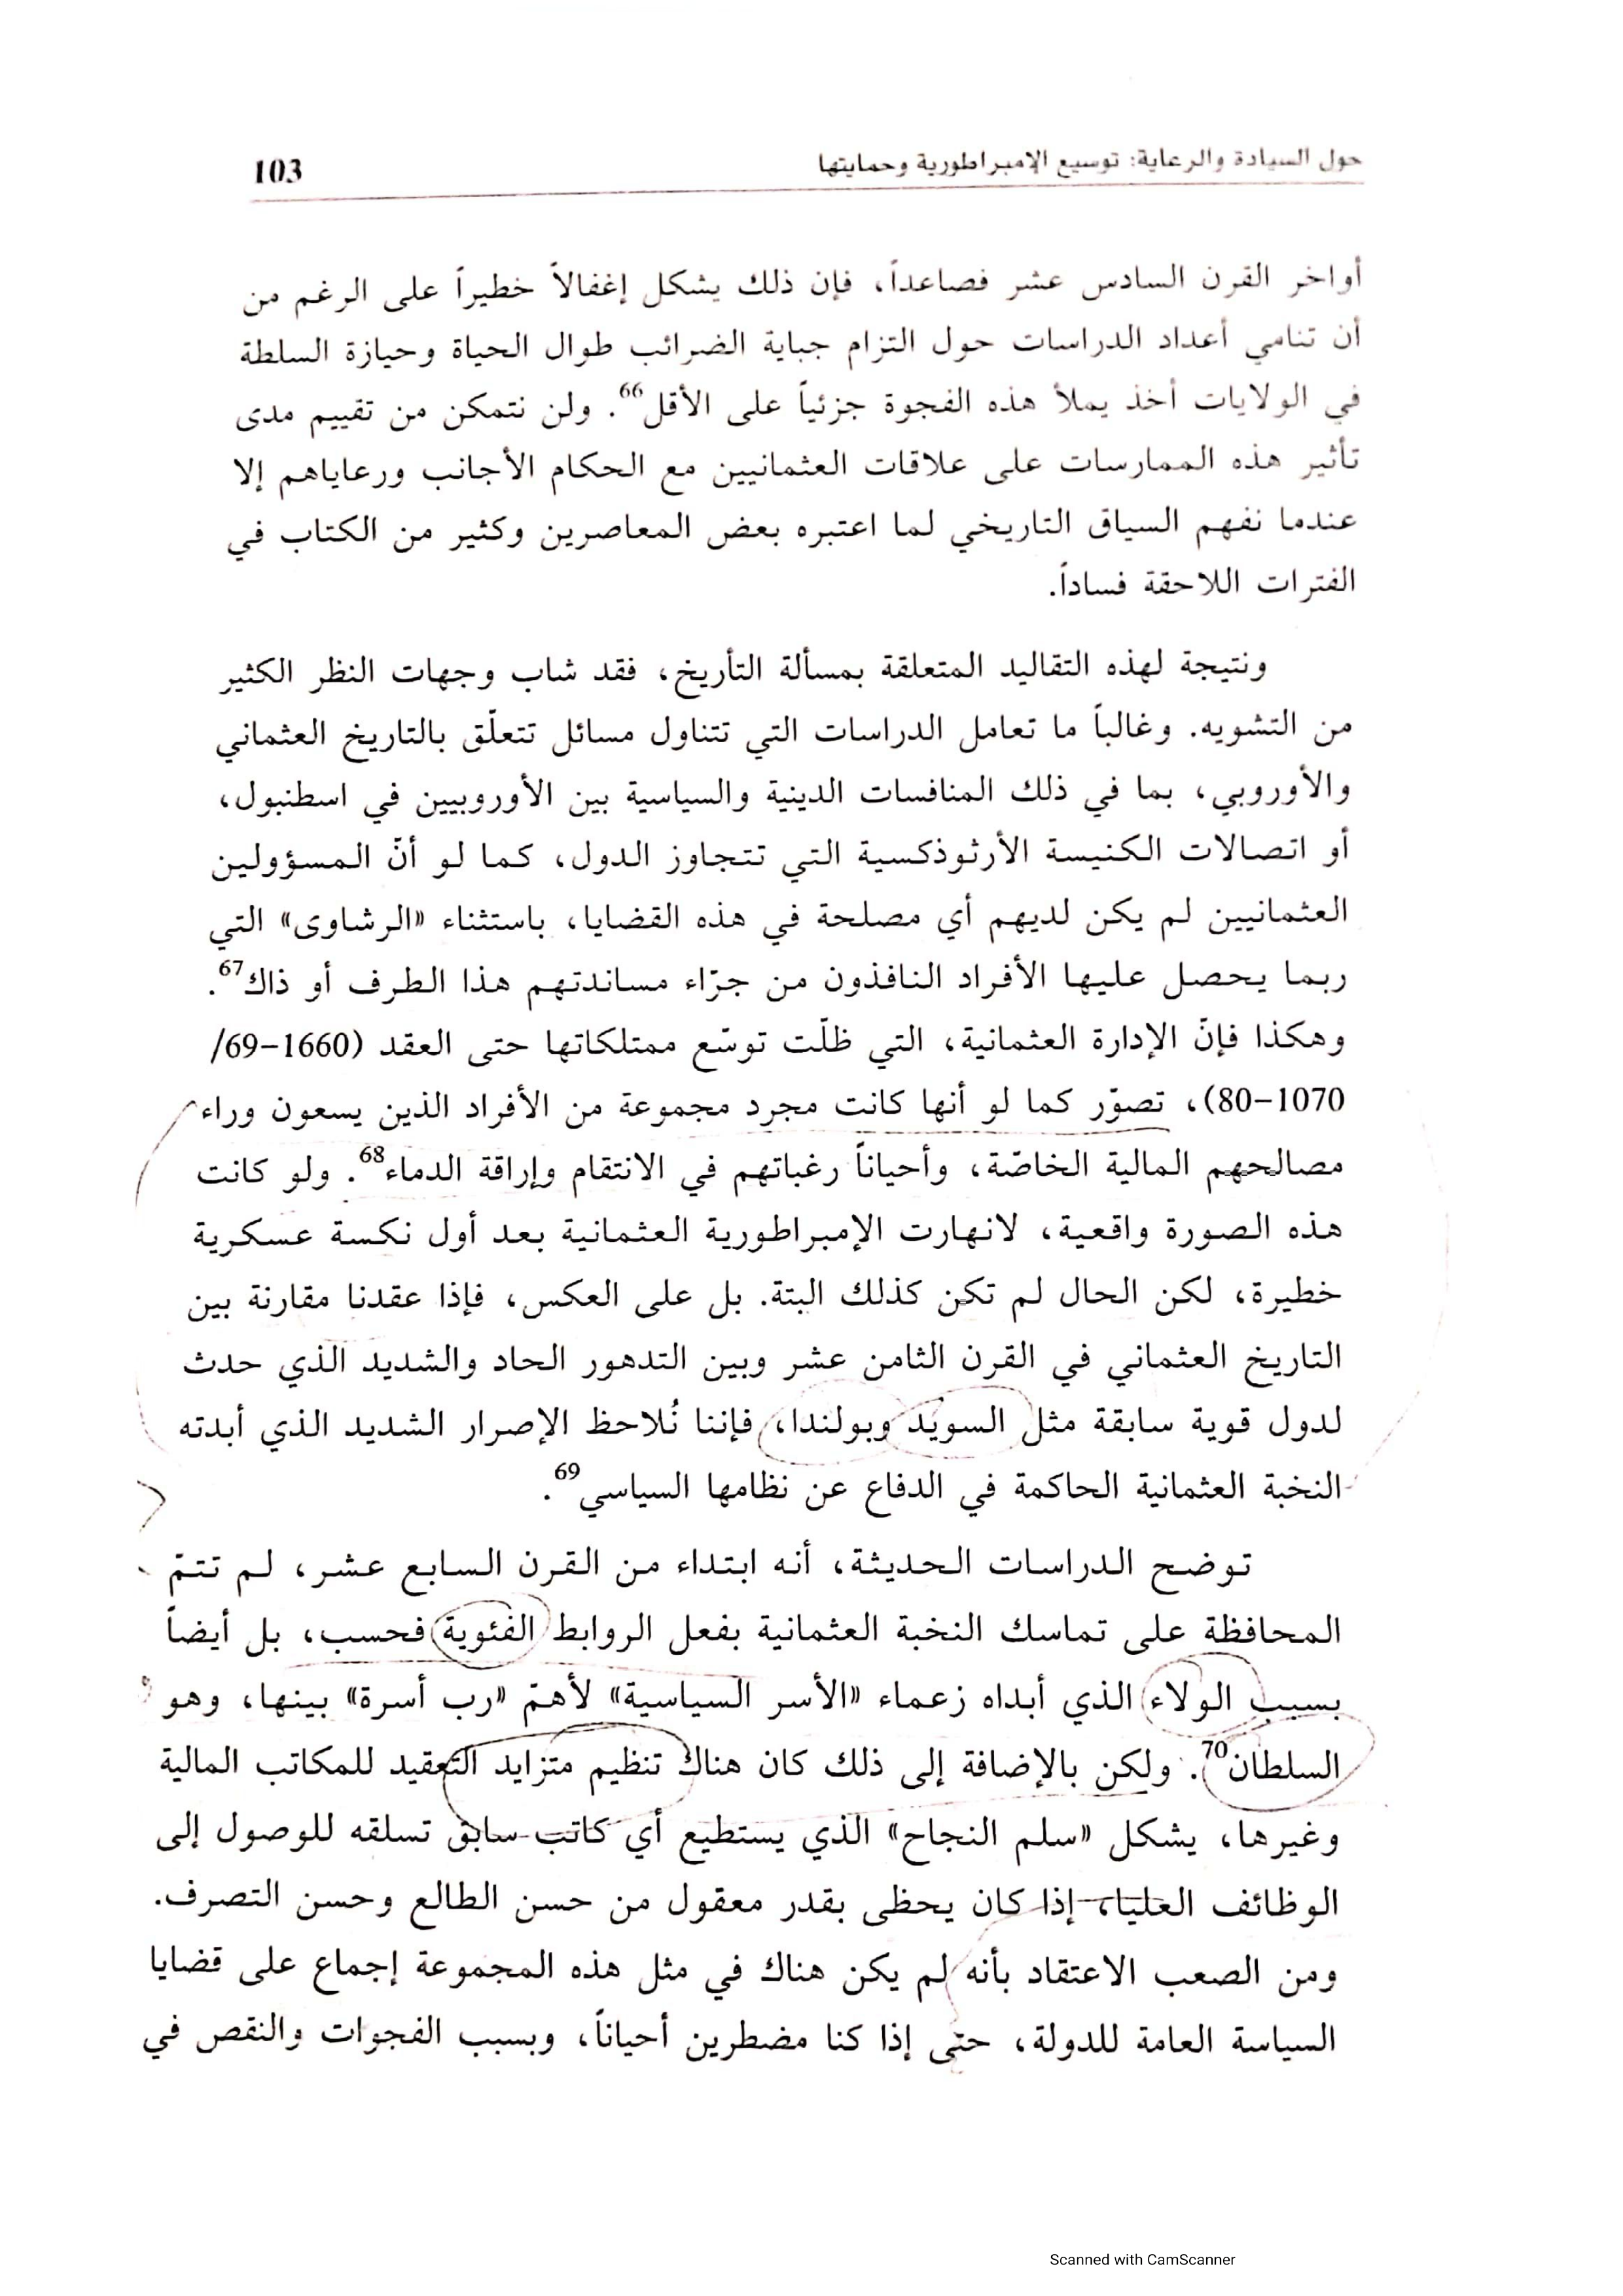 حول السيادة والرعاية: توسيع الإمبراطورية وحمايتها 103
أواخر القرن السادس عشر فصاعداً، فإن ذلك يشكل إغفالاً خطيراً على الرغم من
أن تنامي أعداد الدراسات حول التزام جباية الضرائب طوال الحياة وحيازة السلطة
في الولايات أخذ يملأ هذه الفجوة جزئياً على الأقل66. ولن نتمكن من تقييم مدى
تأثير هذه الممارسات على علاقات العثمانيين مع الحكام الأجانب ورعاياهم إلا
عندما نفهم السياق التاريخي لما اعتبره بعض المعاصرين وكثير من الكتاب في
الفترات اللاحقة فساداً.
ونتيجة لهذه التقاليد المتعلقة بمسألة التأريخ، فقد شاب وجهات النظر الكثير
من التشويه. وغالباً ما تعامل الدراسات التي تتناول مسائل تتعلّق بالتاريخ العثماني
والأوروبي، بما في ذلك المنافسات الدينية والسياسية بين الأوروبيين في اسطنبول،
أو اتصالات الكنيسة الأرثوذكسية التي تتجاوز الدول، كما لو أنّ المسؤولين
العثمانيين لم يكن لديهم أي مصلحة في هذه القضايا، باستثناء «الرشاوى» التي
ربما يحصل عليها الأفراد النافذون من جرّاء مساندتهم هذا الطرف أو ذاك67.
وهكذا فإنّ الإدارة العثمانية، التي ظلّت توسّع ممتلكاتها حتى العقد (1660–69/
1070–80)، تصوّر كما لو أنها كانت مجرد مجموعة من الأفراد الذين يسعون وراء
مصالحهم المالية الخاصّة، وأحياناً رغباتهم في الانتقام وإراقة الدماء68. ولو كانت
هذه الصورة واقعية، لانهارت الإمبراطورية العثمانية بعد أول نكسة عسكرية
خطيرة، لكن الحال لم تكن كذلك البتة. بل على العكس، فإذا عقدنا مقارنة بين
التاريخ العثماني في القرن الثامن عشر وبين التدهور الحاد والشديد الذي حدث
لدول قوية سابقة مثل السويد وبولندا، فإننا نُلاحظ الإصرار الشديد الذي أبدته
النخبة العثمانية الحاكمة في الدفاع عن نظامها السياسي69.
توضح الدراسات الحديثة، أنه ابتداء من القرن السابع عشر، لم تتمّ
المحافظة على تماسك النخبة العثمانية بفعل الروابط الفئوية فحسب، بل أيضاً
بسبب الولاء الذي أبداه زعماء «الأسر السياسية» لأهمّ «رب أسرة» بينها، وهو
السلطان70. ولكن بالإضافة إلى ذلك كان هناك تنظيم متزايد التعقيد للمكاتب المالية
وغيرها، يشكل «سلم النجاح» الذي يستطيع أي كاتب سابق تسلقه للوصول إلى
الوظائف العليا، إذا كان يحظى بقدر معقول من حسن الطالع وحسن التصرف.
ومن الصعب الاعتقاد بأنه لم يكن هناك في مثل هذه المجموعة إجماع على قضايا
السياسة العامة للدولة، حتى إذا كنا مضطرين أحياناً، وبسبب الفجوات والنقص في
Scanned with CamScanner